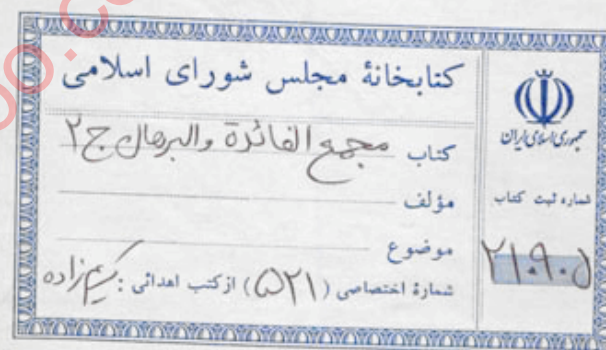 کتابخانهٔ مجلس شورای اسلامی
کتاب مجمع الفائدة والبرهان ج ۲
مؤلف
موضوع
شمارهٔ اختصاصی (۵۲۱) از کتب اهدائی : کریم‌زاده
جمهوری اسلامی ایران
شماره ثبت کتاب
۲۱۹۰۵